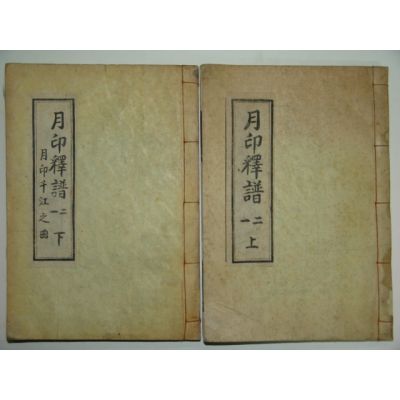 月印釋譜 一二 下
月印千江之曲
月印釋譜 一二 上